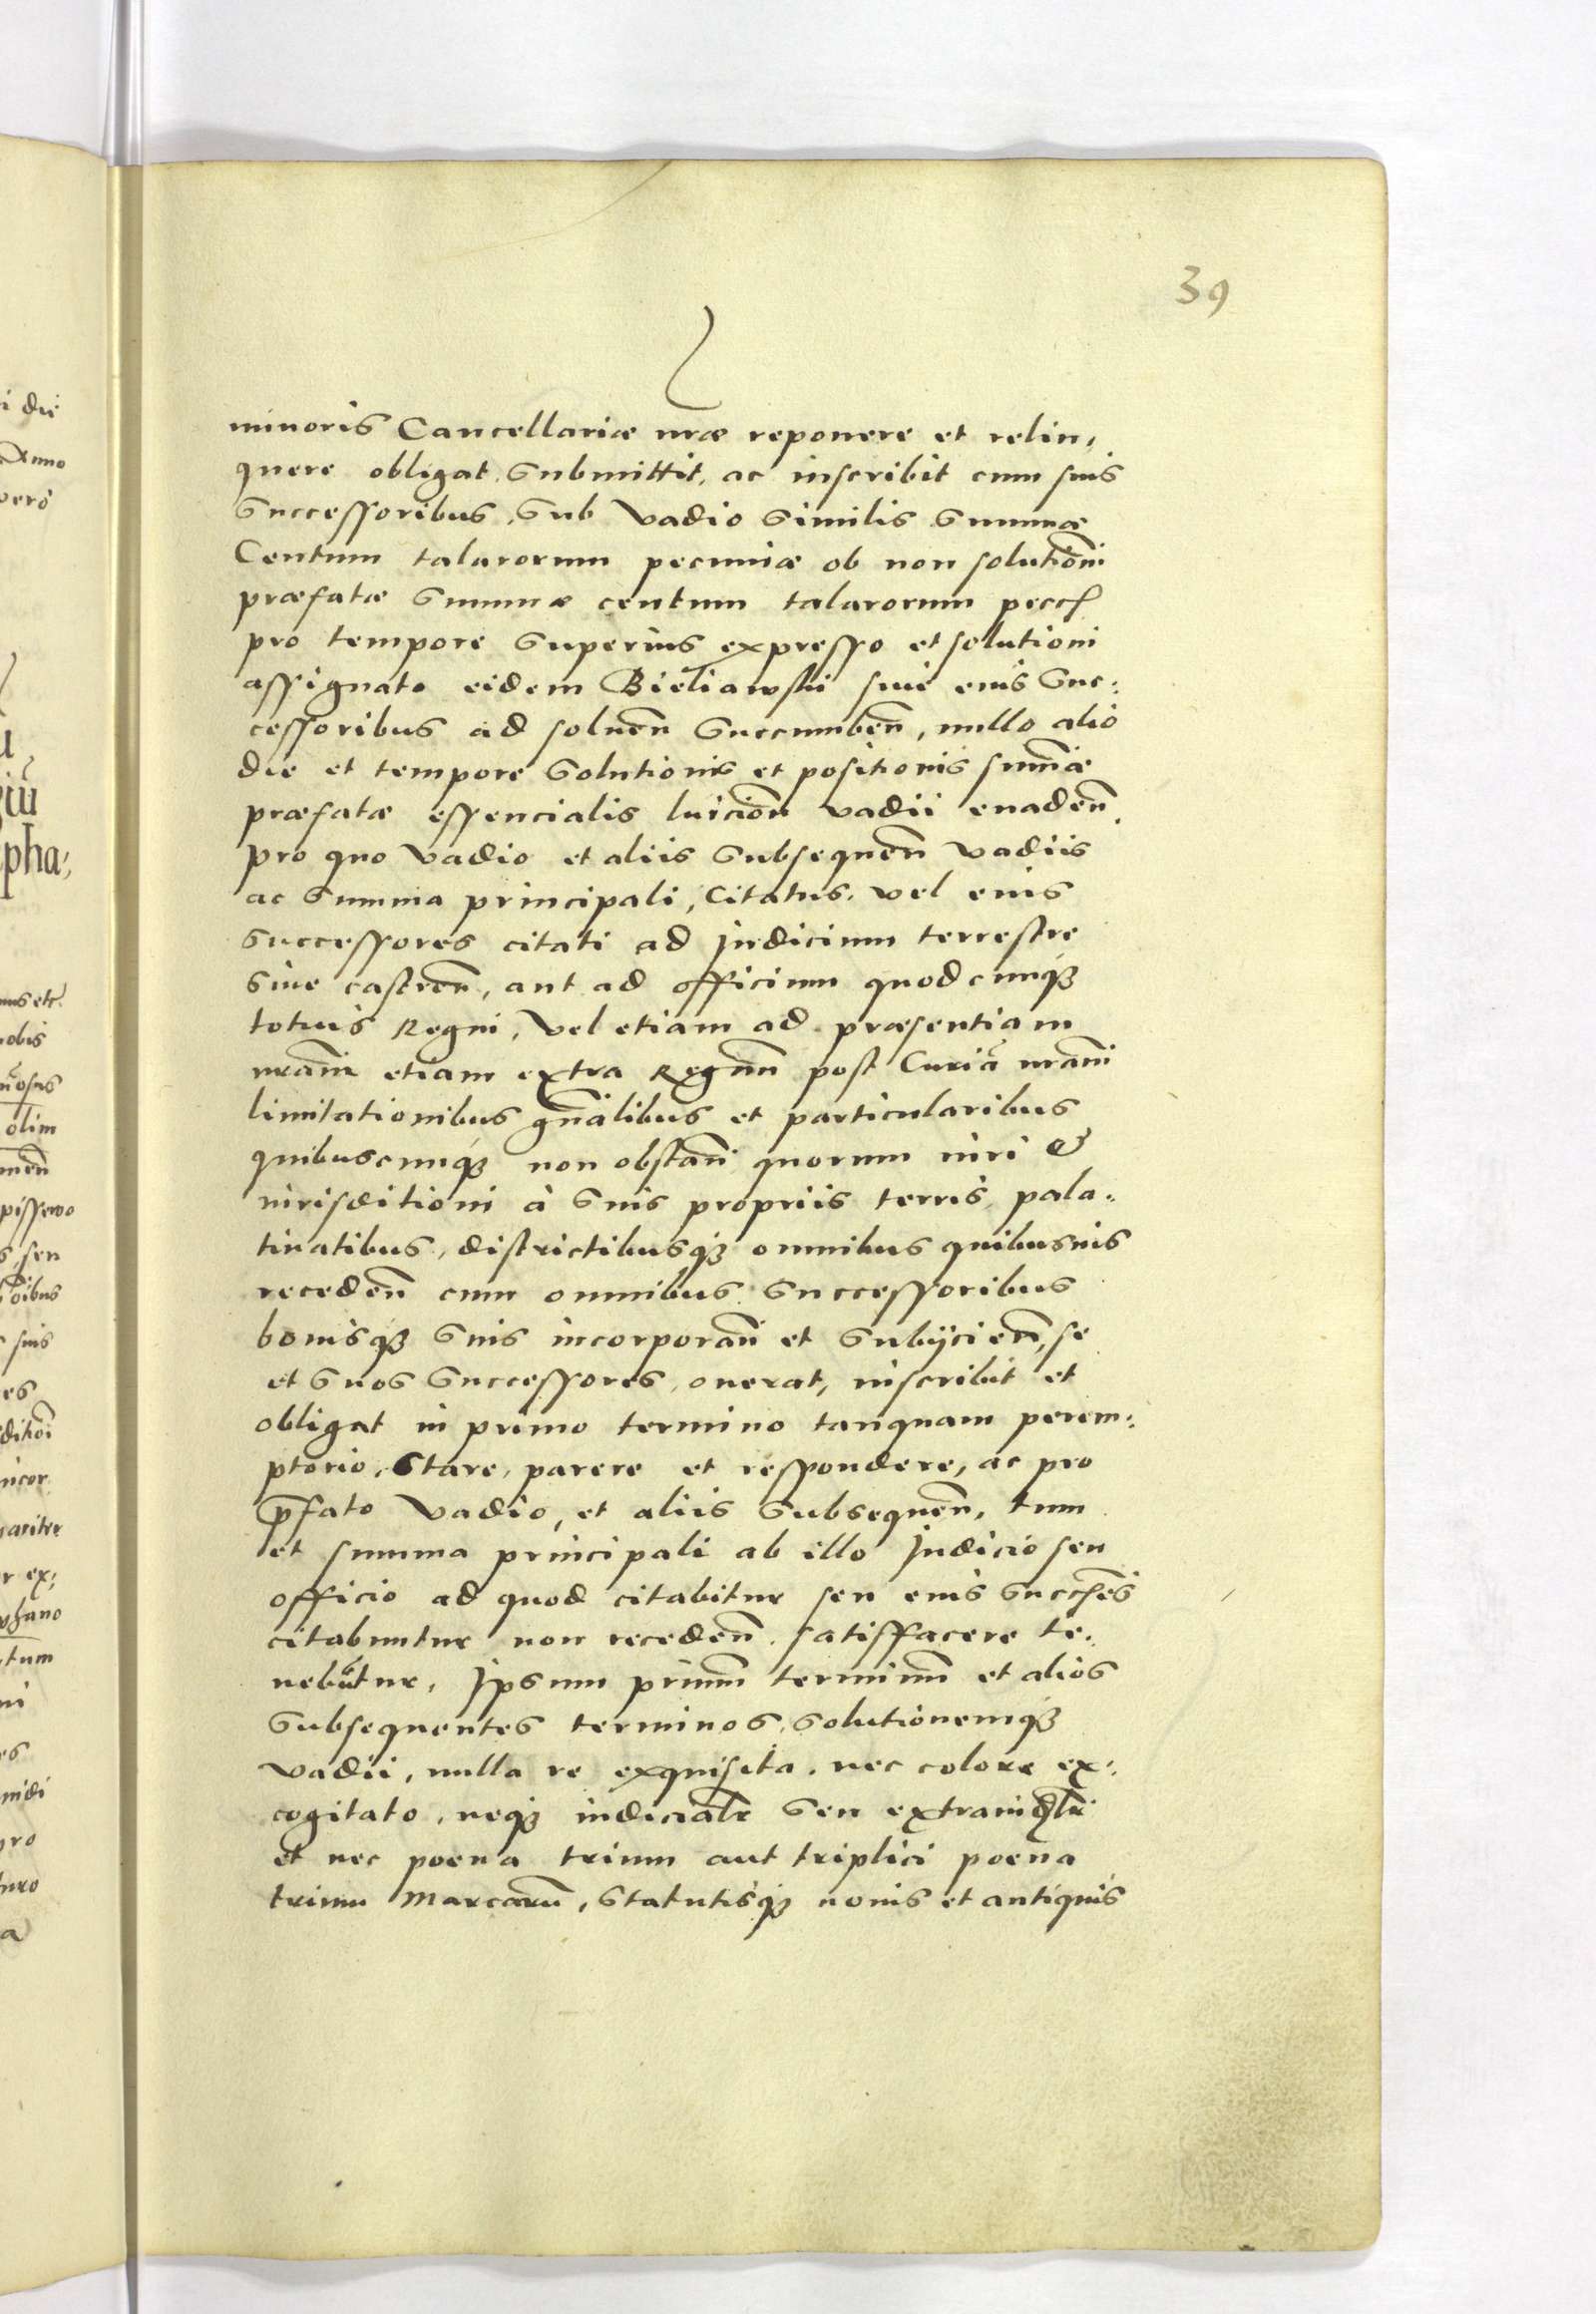 39
minoris Cancellariæ nr̃æ reponere et relin,
quere obligat, submittit, ac inscribit cum suis
successoribus, sub vadio similis summæ
Centum talarorum pecuniæ ob non solutioñ
præfatæ summæ centum talarorum
pro tempore superius expresso et solutioni
assignato eidem Bieliawski sive eius suc:
cessoribus ad solueñ succumbeñ, nullo alio
die et tempore solutionis et positionis sum̃æ
præfatæ essencialis luicioñ vadii euadeñ,
pro quo vadio et aliis subsequeñ vadiis
ac summa principali, citatus, vel eius
successores citati ad judicium terrestre
siue castreñ, aut ad officium quodcunqꝫ
totius Regni, vel etiam ad præsentiam
nr̃am etiam extra Regnũ post Curiã nr̃am
limitationibus gñalibus et particularibus
quibuscunqꝫ non obstañ quorum iuri &
iurisditioni à suis propriis terris, pala-
tinatibus, districtibusqꝫ omnibus quibusuis
recedeñ cum omnibus successoribus
bonisqꝫ suis incorporañ et subijcieñ, se
et suos successores, onerat, inscribit et
obligat in primo termino tanquam perem:
ptorio, stare, parere et respondere, ac pro
p̃fato vadio, et aliis subsequeñ, tum
et summa principali ab illo Judicio seu
officio ad quod citabitur seu eius
citabuntur non recedeñ, satisffacere te,
nebũtur, Ipsum primũ terminũ et alios
subsequentes terminos, solutionemqꝫ
vadii, nulla re exquisita, nec colore ex:
cogitato, neqꝫ iudicialr̃ seu
et nec poena trium aut triplici poena
trium Marcarũ, statutisqꝫ nouis et antiquis
i die
Anno
vero
iũ
pha:
nobis
olim
seu
oibus
suis
es
ditioi
incor
ex:
phano
tum
ni
es
pro